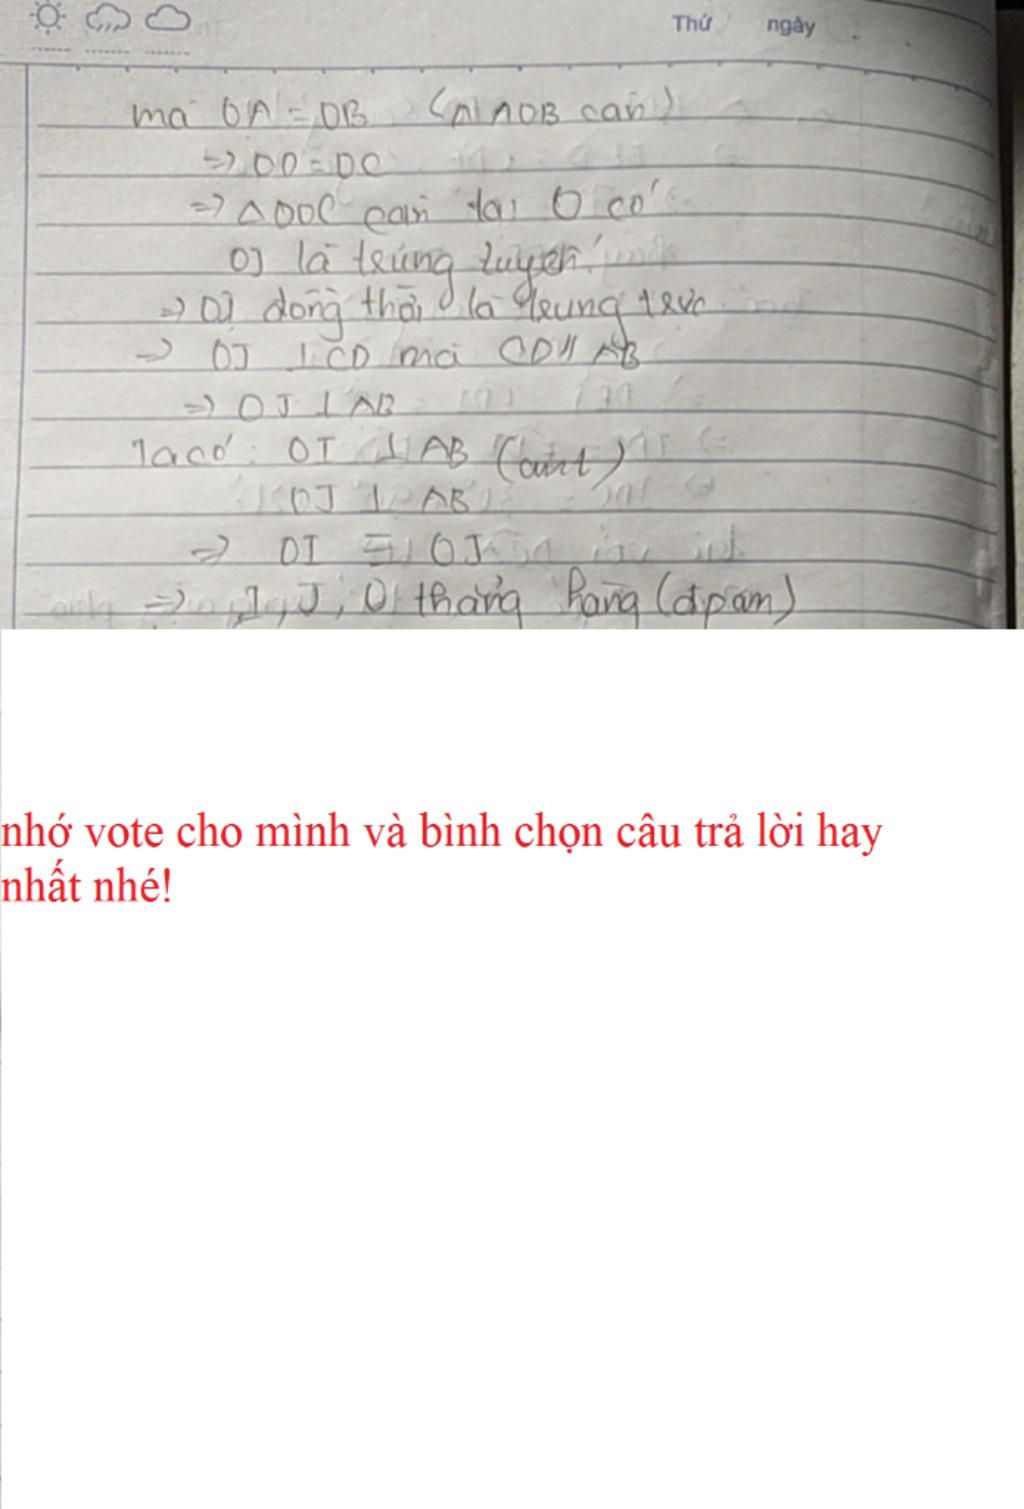 Thứ ngày
mà OA = OB (△ AOB cân)
=> OD = OC
=> △ ODC cân tại O có
OJ là trung tuyến
=> OJ đồng thời là trung trực
=> OJ ⊥ CD mà CD // AB
=> OJ ⊥ AB
Ta có: OI ⊥ AB (cmt)
OJ ⊥ AB
=> OI ≡ OJ
=> I, J, O thẳng hàng (đpcm)
nhớ vote cho mình và bình chọn câu trả lời hay
nhất nhé!